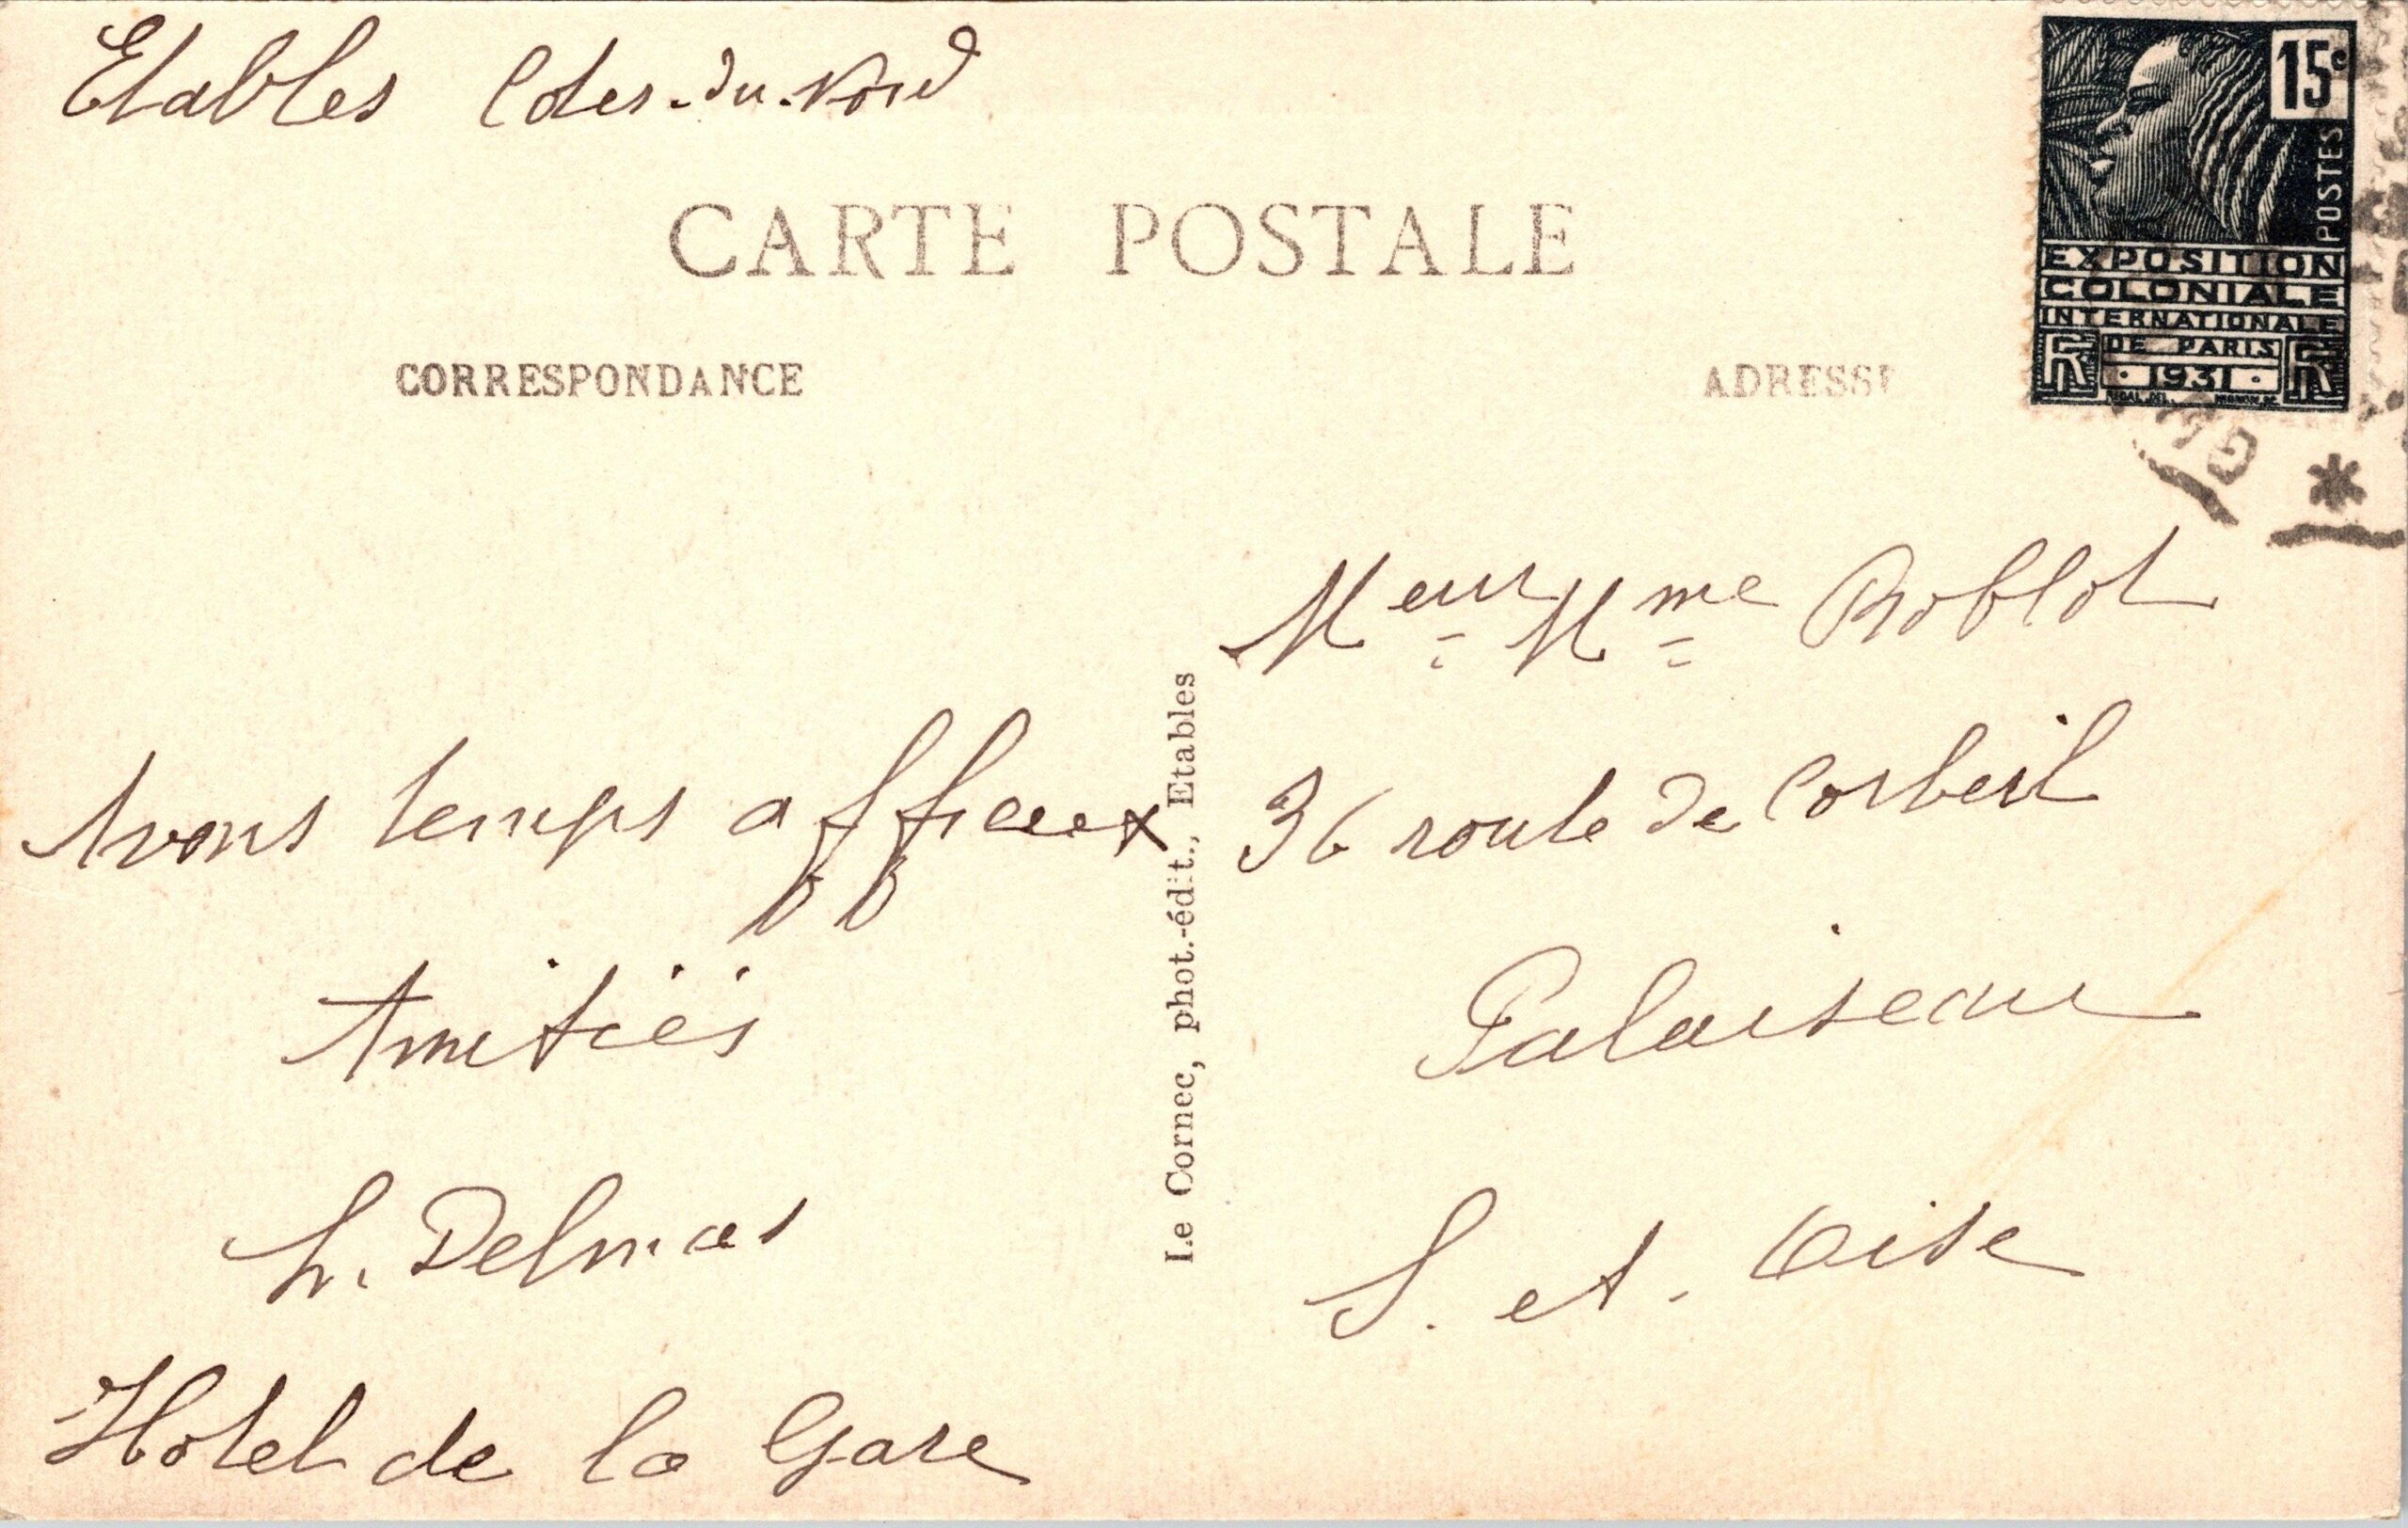 Etables Cotes-du-Nord
15c
POSTES
EXPOSITION
COLONIALE
INTERNATIONALE
DE PARIS
1931
CARTE POSTALE
CORRESPONDANCE
ADRESSE
Avons temps affreux
Amitiés
L. Delmas
Hotel de la Gare
Le Cornec, phot.-édit., Etables
Meur Mme Roblot
36 route de Corbeil
Palaiseau
S. et. Oise